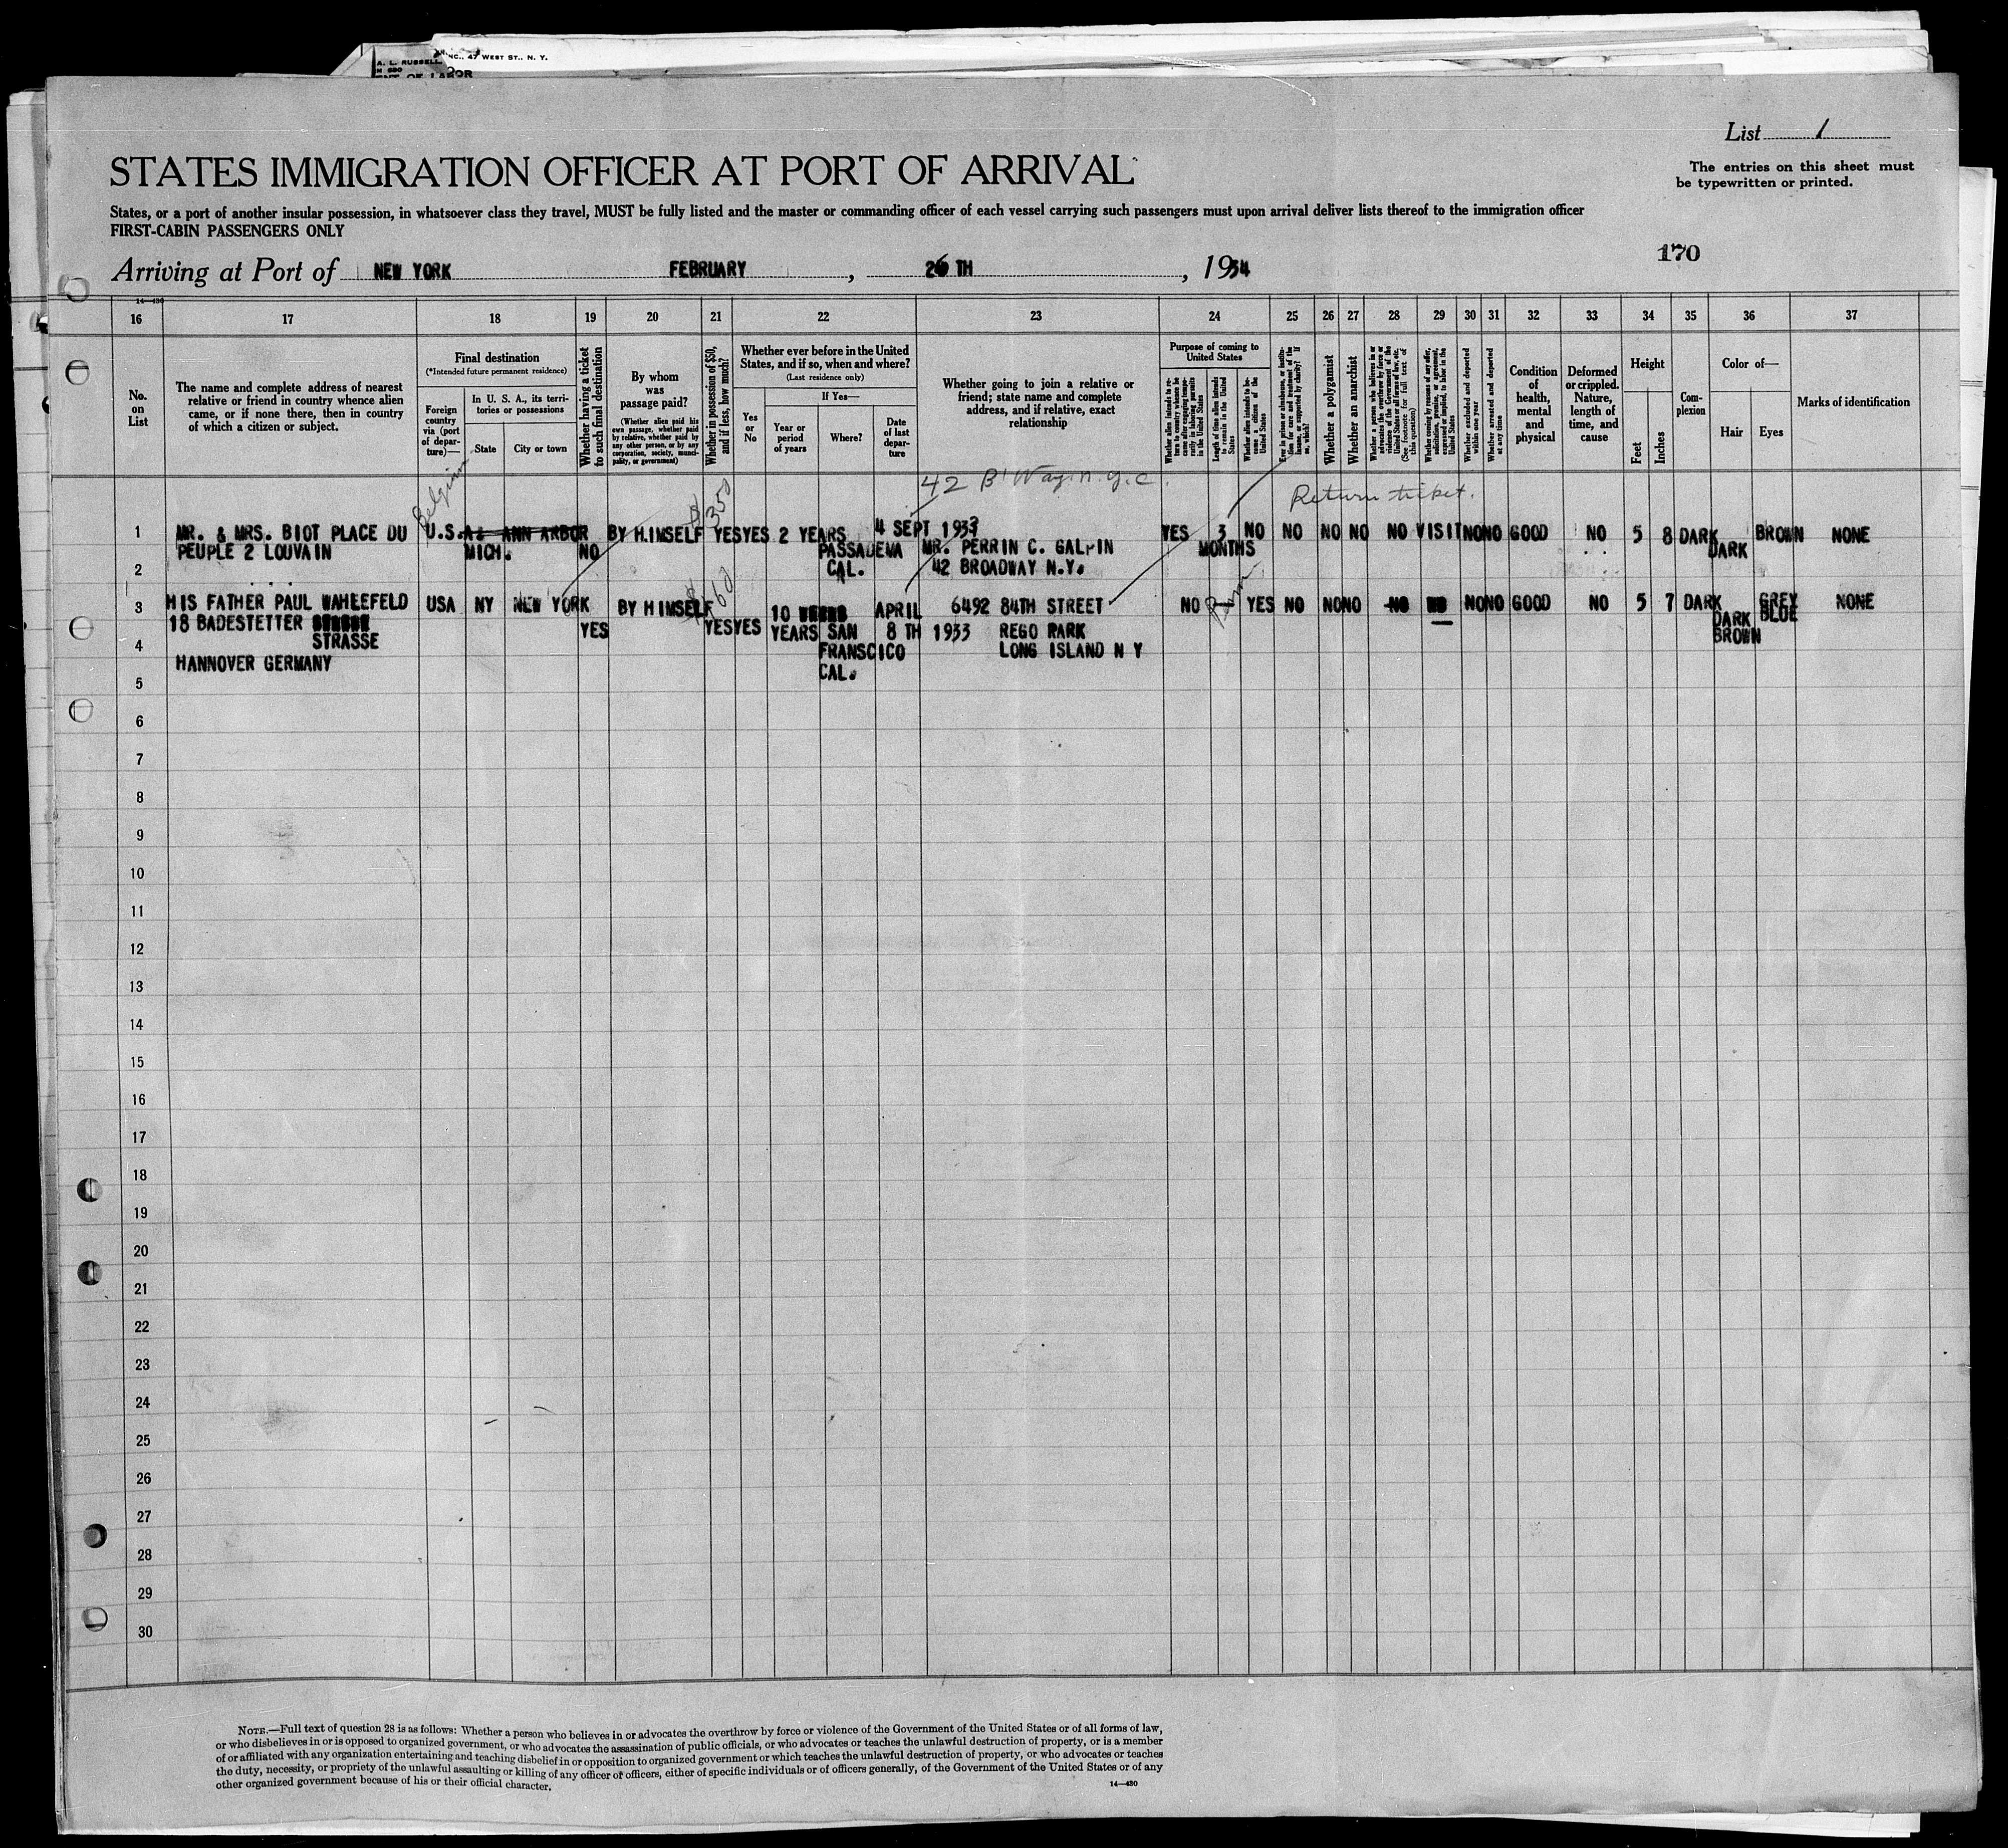 A. L. RUSSELL, INC., 47 WEST ST., N. Y.
List 1
STATES IMMIGRATION OFFICER AT PORT OF ARRIVAL
The entries on this sheet must
be typewritten or printed.
States, or a port of another insular possession, in whatsoever class they travel, MUST be fully listed and the master or commanding officer of each vessel carrying such passengers must upon arrival deliver lists thereof to the immigration officer
FIRST-CABIN PASSENGERS ONLY
170
Arriving at Port of NEW YORK FEBRUARY, 26 TH, 1934
14—430
16 17 18 19 20 21 22 23 24 25 26 27 28 29 30 31 32 33 34 35 36 37
No. on List
The name and complete address of nearest
relative or friend in country whence alien
came, or if none there, then in country
of which a citizen or subject.
Final destination
(*Intended future permanent residence)
Foreign country via (port of departure)—
In U. S. A., its territories or possessions
State
City or town
Whether having a ticket to such final destination
By whom was passage paid?
(Whether alien paid his own passage, whether paid by relative, whether paid by any other person, or by any corporation, society, municipality, or government)
Whether in possession of $50, and if less, how much?
Whether ever before in the United
States, and if so, when and where?
(Last residence only)
Yes or No
If Yes—
Year or period of years
Where?
Date of last departure
Whether going to join a relative or
friend; state name and complete
address, and if relative, exact
relationship
Purpose of coming to
United States
Length of time alien intends to remain in the United States
Whether alien intends to become a citizen of the United States
Whether a polygamist
Whether an anarchist
(See footnote for full text of this question)
Whether excluded and deported within one year
Whether arrested and deported at any time
Condition of health, mental and physical
Deformed or crippled. Nature, length of time, and cause
Height
Feet
Inches
Complexion
Color of—
Hair
Eyes
Marks of identification
42 B'Way. n.y.c.
Return ticket.
Belgium
$350
1 MR. & MRS. BIOT PLACE DU U.S.A. ANN ARBOR BY HIMSELF YES YES 2 YEARS 4 SEPT 1933 YES 3 NO NO NO NO NO VISIT NO NO GOOD NO 5 8 DARK BROWN NONE
PEUPLE 2 LOUVAIN MICH. NO PASSADENA MR. PERRIN C. GALPIN MONTHS DARK
2 CAL. 42 BROADWAY N.Y.
$60
3 HIS FATHER PAUL WAHLEFELD USA NY NEW YORK BY HIMSELF 10 APRIL 6492 84TH STREET NO YES NO NO NO NO NO NO NO GOOD NO 5 7 DARK GREY NONE
18 BADESTETTER YES YES YES YEARS SAN 8 TH 1933 REGO PARK DARK BLUE
4 STRASSE FRANSCICO LONG ISLAND N Y BROWN
HANNOVER GERMANY CAL.
5
6
7
8
9
10
11
12
13
14
15
16
17
18
19
20
21
22
23
24
25
26
27
28
29
30
NOTE.—Full text of question 28 is as follows: Whether a person who believes in or advocates the overthrow by force or violence of the Government of the United States or of all forms of law,
or who disbelieves in or is opposed to organized government, or who advocates the assassination of public officials, or who advocates or teaches the unlawful destruction of property, or is a member
of or affiliated with any organization entertaining and teaching disbelief in or opposition to organized government or which teaches the unlawful destruction of property, or who advocates or teaches
the duty, necessity, or propriety of the unlawful assaulting or killing of any officer or officers, either of specific individuals or of officers generally, of the Government of the United States or of any
other organized government because of his or their official character.
14—430